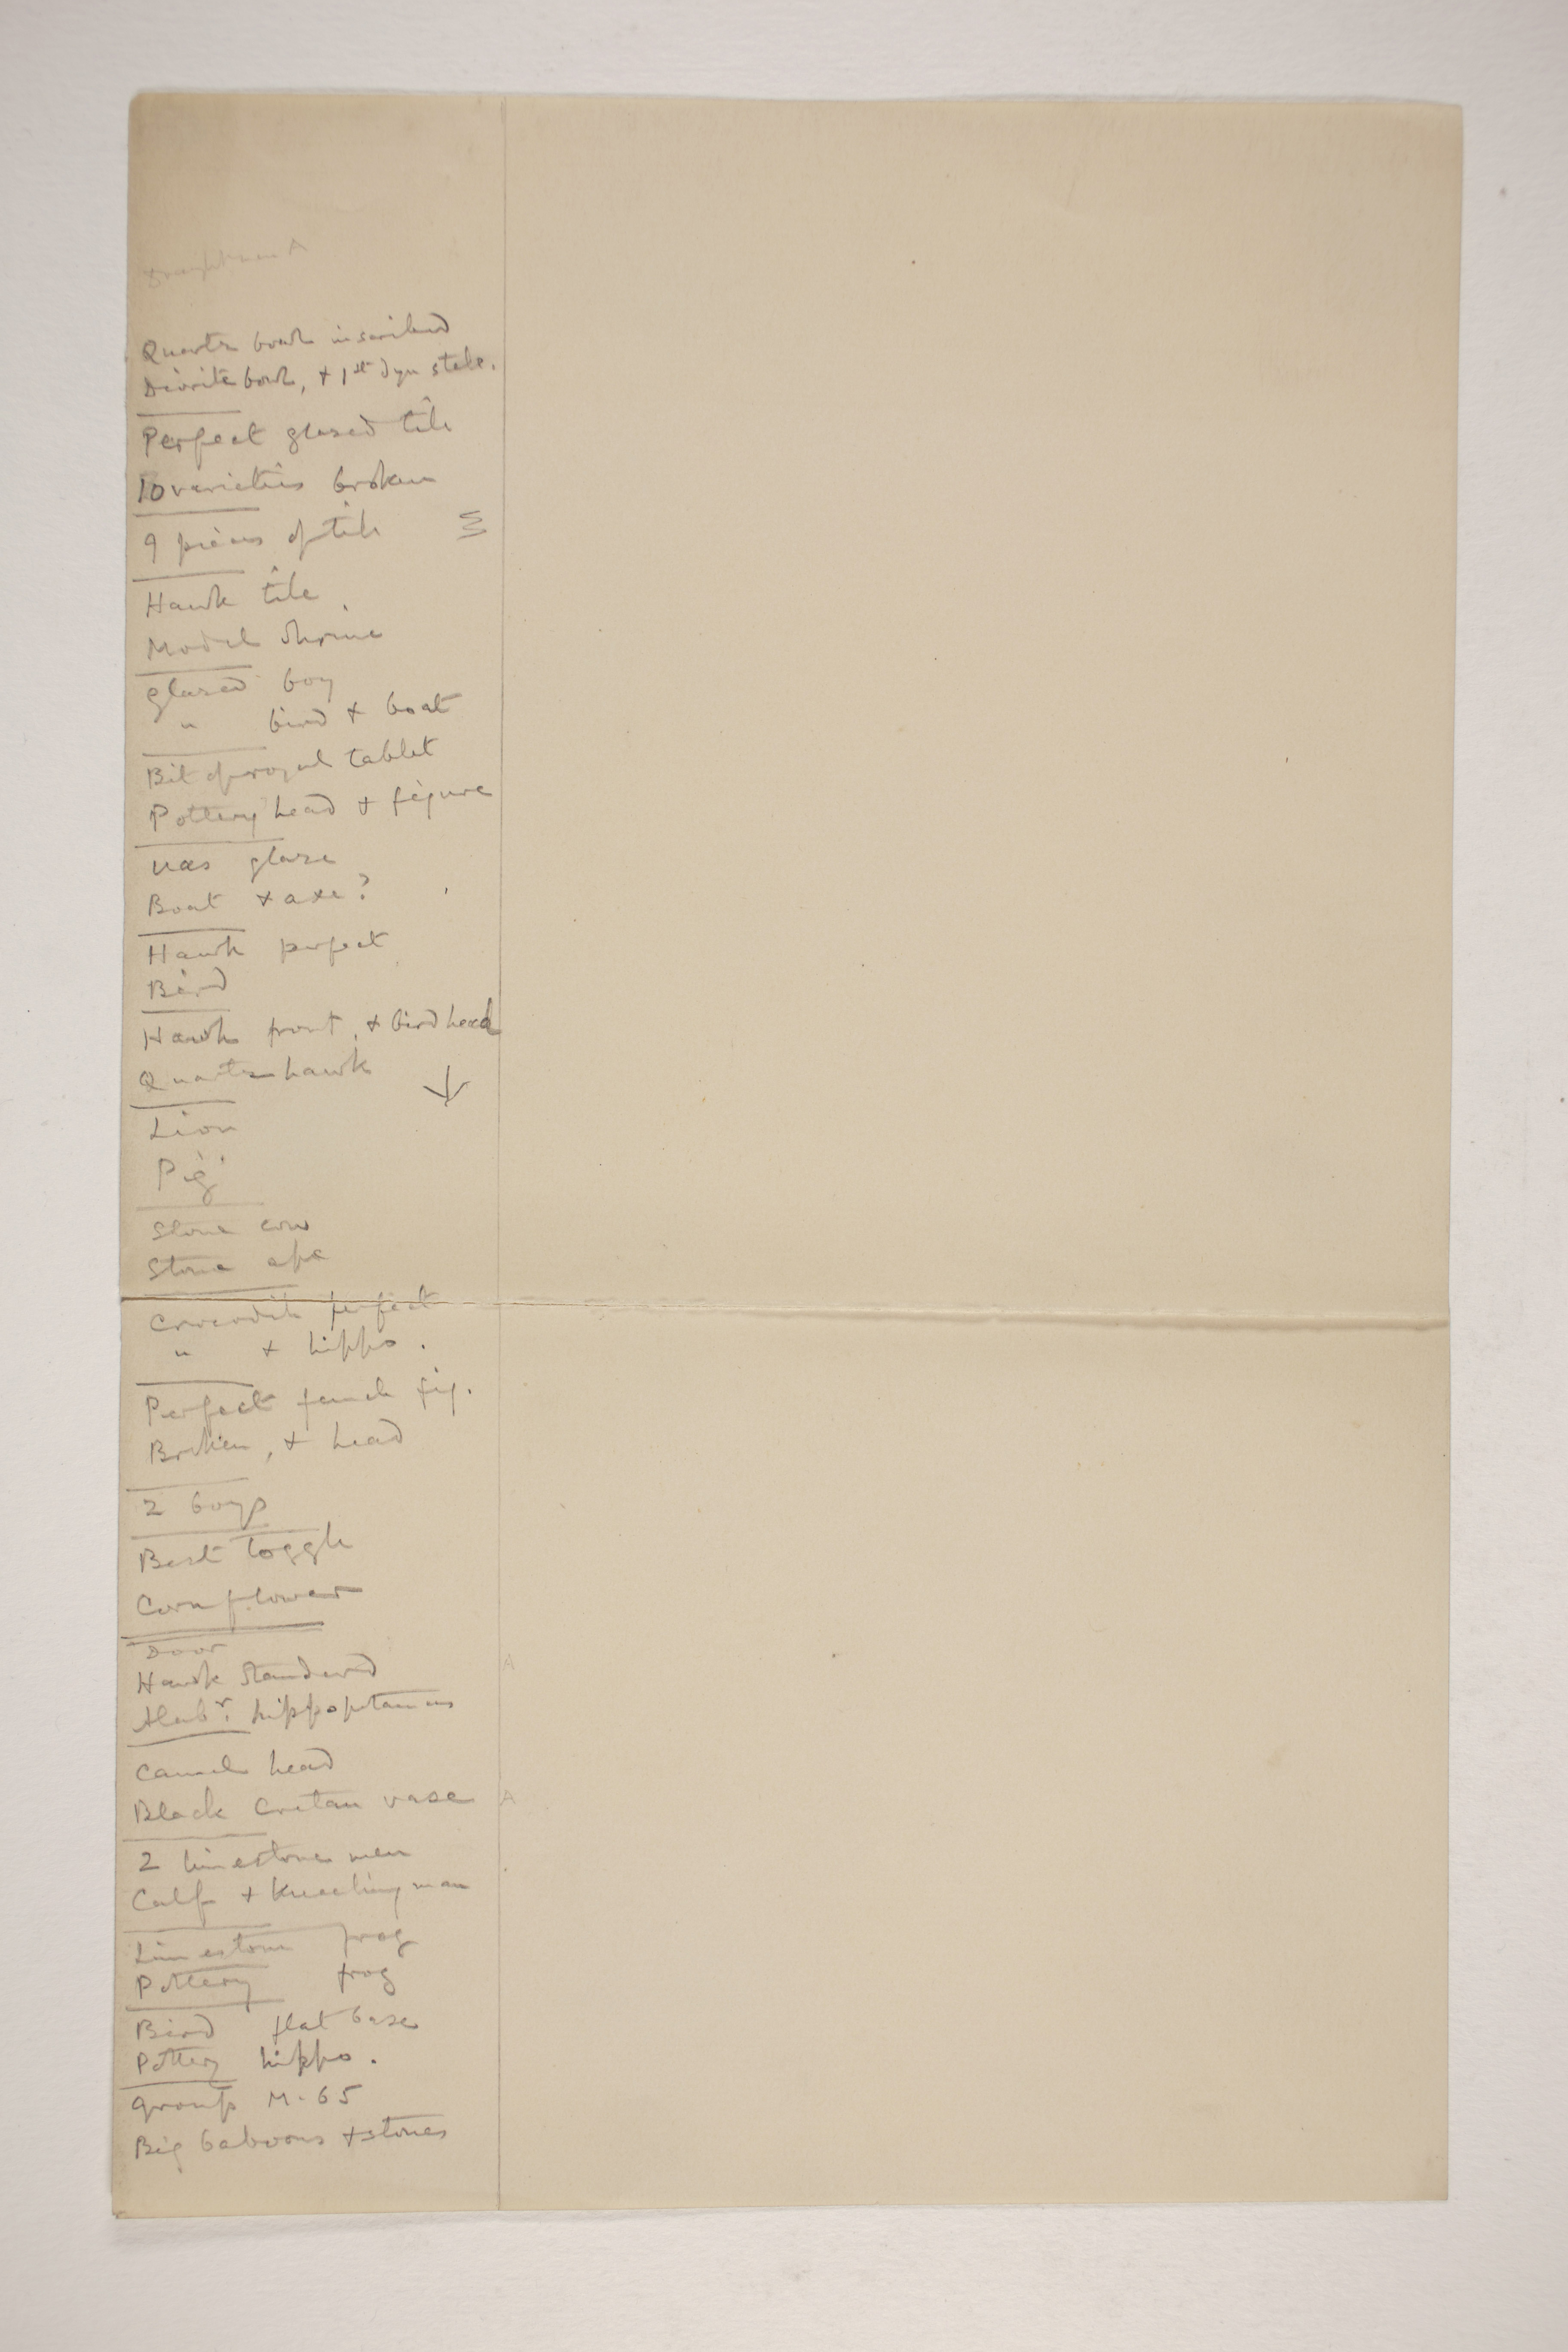 Quartz bowl inscribed
Diorite bowl, + 1st Dyn stele.
Perfect glazed tile
10 varieties broken
9 pieces of tile
Hawk tile
Model shrine
glazed boy
" bird + boat
Bit of royal tablet
Pottery head + figure
uas glaze
Boat + axe?
Hawk perfect
Bird
Hawk front, + bird head
Quartz hawk
Lion
Pig
Stone cow
Stone ape
Crocodile perfect
" + hippo.
Perfect female fig.
Broken, + head
2 boys
Best toggle
Cornflower
Door
Hawk Standard A
Alabr. hippopotamus
Camel head
Black Cretan vase A
2 limestone men
Calf + kneeling man
Limestone frog
Pottery frog
Bird flat base
Pottery hippo.
group M.65
Big baboons + stones